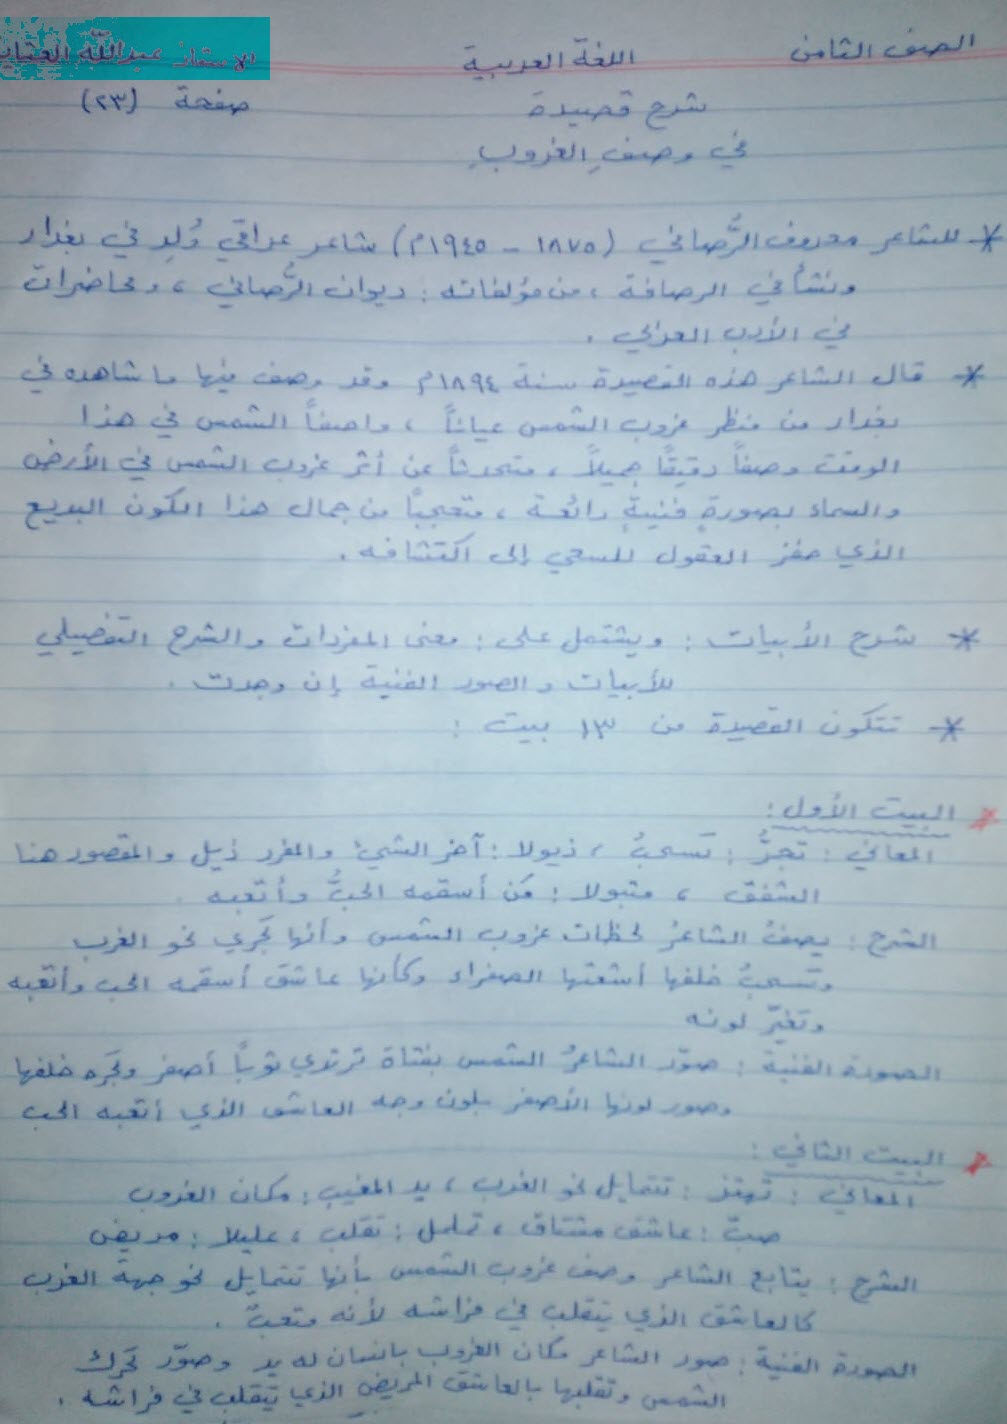 الصف الثامن اللغة العربية الاستاذ عبداللّه
شرح قصيدة صفحة (٢٣)
في وصفِ الغروبِ
* للشاعر معروف الرُّصافي (١٨٧٥ - ١٩٤٥م) شاعر عراقيّ وُلِد في بغداد
ونشأ في الرصافة ، من مؤلفاته : ديوان الرُّصافي ، ومحاضرات
في الأدب العربي .
* قال الشاعر هذه القصيدة سنة ١٨٩٤م وقد وصف فيها ما شاهده في
بغداد من منظر غروب الشمس عياناً ، واصفاً الشمس في هذا
الوقت وصفاً دقيقًا جميلاً ، متحدثاً عن أثر غروب الشمس في الأرض
والسماء بصورةٍ فنيةٍ رائعة ، متعجبًا من جمال هذا الكون البديع
الذي حفز العقول للسعي إلى اكتشافه .
* شرح الأبيات : ويشتمل على : معنى المفردات والشرح التفصيلي
للأبيات والصور الفنية إن وجدت .
* تتكون القصيدة من ١٣ بيت :
* البيت الأول :
المعاني : تجرُّ : تَسحبُ ، ذيولا : آخر الشيء والمفرد ذيل والمقصور هنا
الشفق ، متبولا : مَن أسقمه الحبُّ وأتعبه .
الشرح : يصفُ الشاعرُ لحظات غروب الشمس وأنها تَجري نحو الغرب
وتسحبُ خلفها أشعتها الصفراء وكأنها عاشق أسقمه الحب وأتعبه
وتغيّر لونه
الصورة الفنية : صوّر الشاعرُ الشمس بفتاة ترتدي ثوباً أصفر وتجَره خلفها
وصور لونها الأصفر بلون وجه العاشق الذي أتعبه الحب
* البيت الثاني :
المعاني : تهتز : تتمايل نحو الغرب ، يد المغيب : مكان الغروب
صبّ : عاشق مشتاق ، تململ : تقلب ، عليلا : مريض
الشرح : يتابع الشاعر وصف غروب الشمس بأنها تتمايل نحو جهة الغرب
كالعاشق الذي يتقلب في فراشه لأنه متعبٌ .
الصورة الفنية : صور الشاعر مكان الغروب بإنسان له يد وصوّر تَحرك
الشمس وتقلبها بالعاشق المريض الذي يتقلب في فراشه .